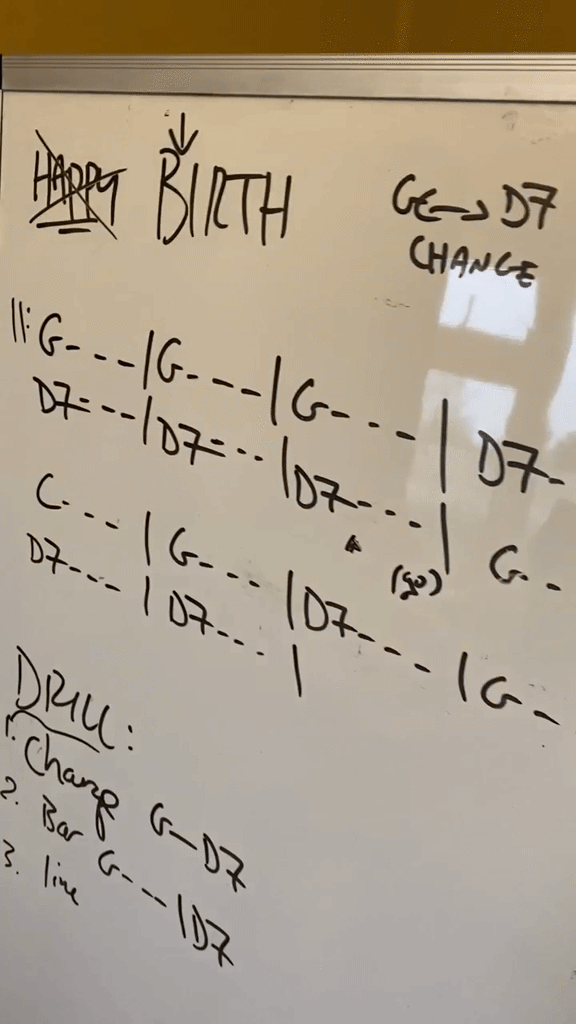 HAPPY BIRTH
G ←→ D7
CHANGE
||: G - - - | G - - - | G - - - | D7 -
D7 - - - | D7 - - - | D7 - - - | G - -
(go)
C - - - | G - - - | D7 - - - | G -
D7 - - - | D7 - - - |
DRILL:
1. Change G - D7
2. Bar G - - - | D7
3. line